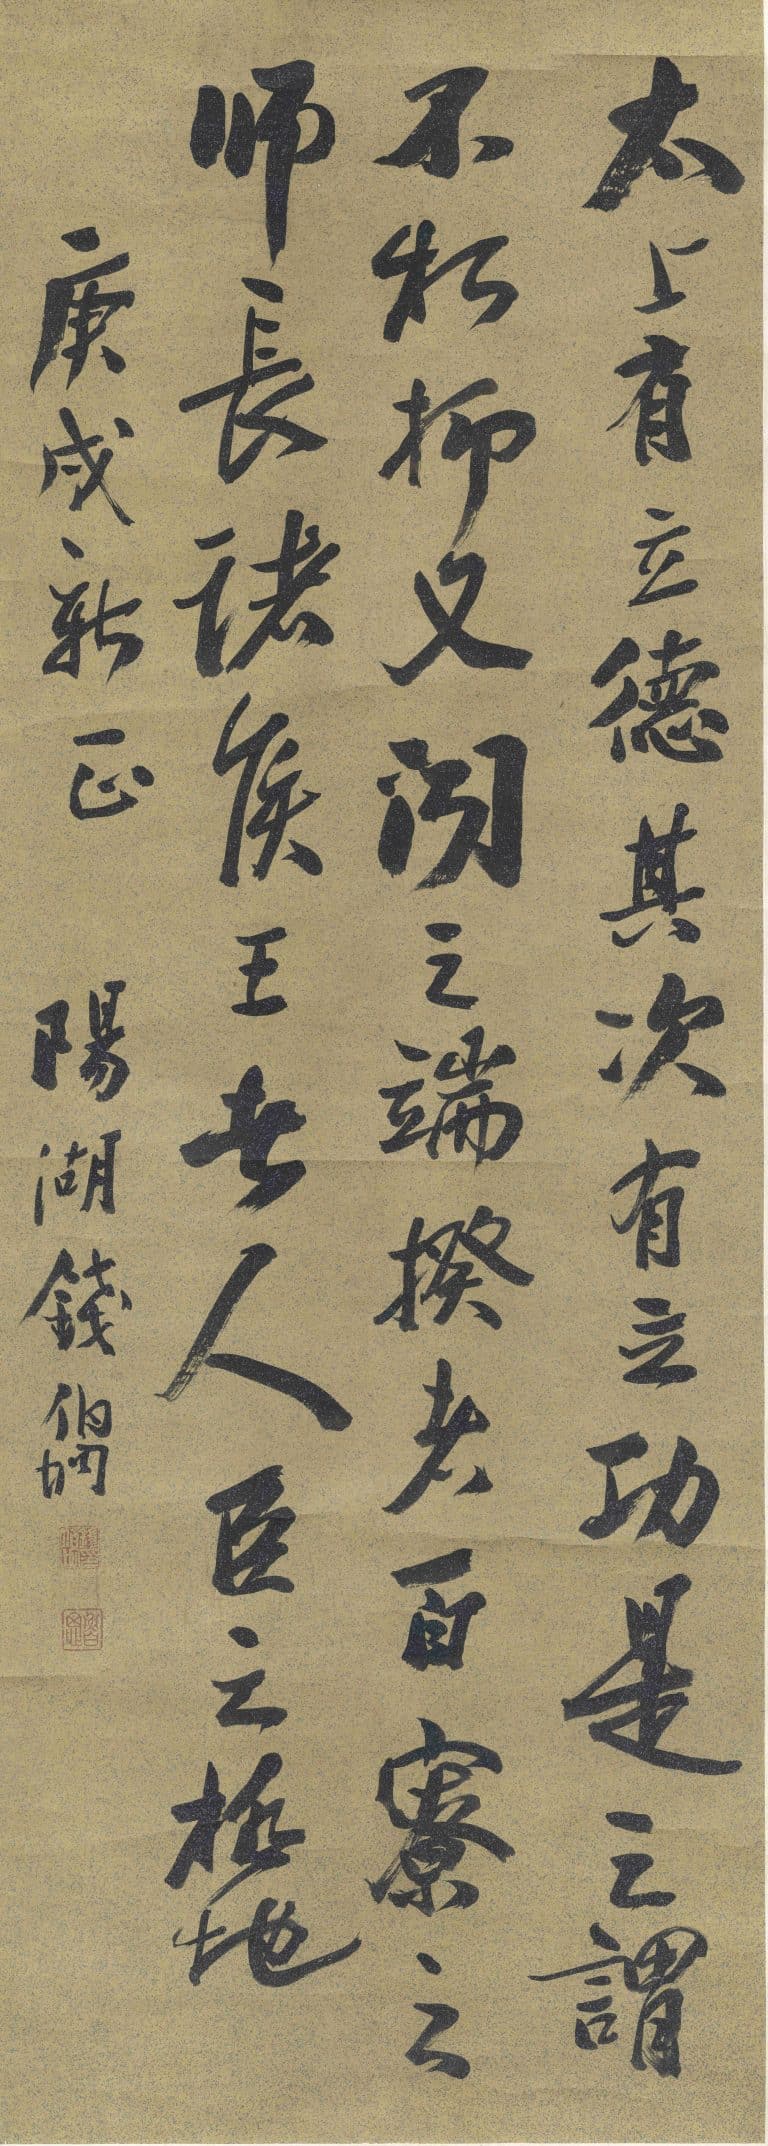 太上有立德其次有立功是之謂
不朽抑又聞之端揆者百寮之
師長諸侯王者人臣之極地
庚戌新正 陽湖錢伯坰